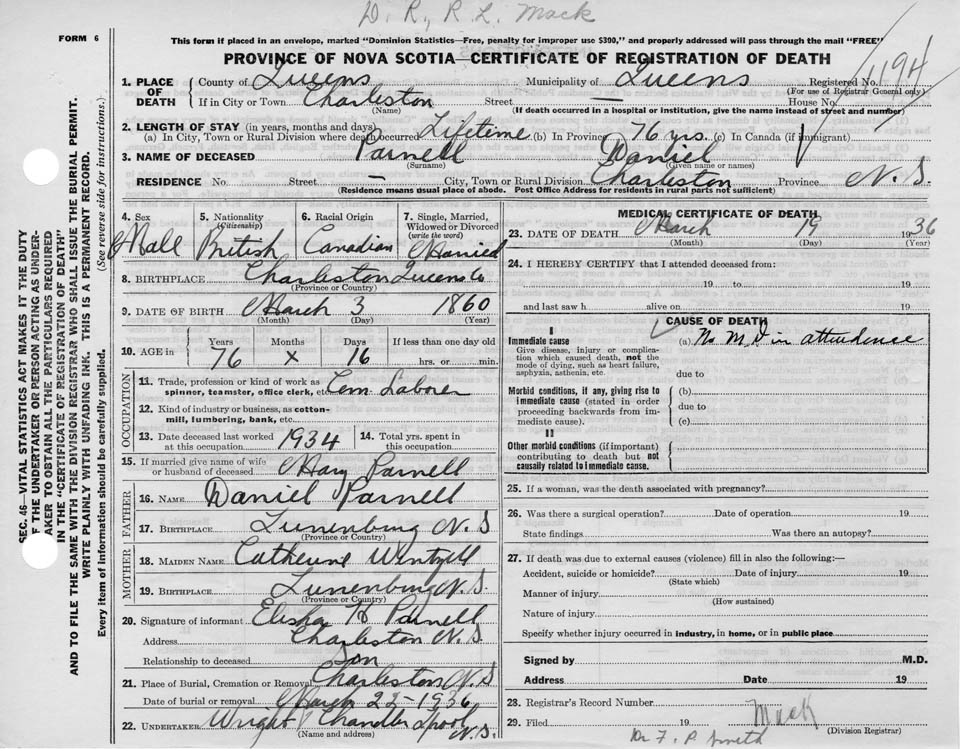 D. R., R. L. Mack
FORM 6
This form if placed in an envelope, marked "Dominion Statistics—Free, penalty for improper use $300," and properly addressed will pass through the mail "FREE"
PROVINCE OF NOVA SCOTIA—CERTIFICATE OF REGISTRATION OF DEATH
1. PLACE OF DEATH County of Queens Municipality of Queens Registered No. 1194
(For use of Registrar General only)
If in City or Town Charleston Street — House No.
(Name) (If death occurred in a hospital or institution, give the name instead of street and number)
2. LENGTH OF STAY (in years, months and days)
(a) In City, Town or Rural Division where death occurred Lifetime (b) In Province 76 yrs. (c) In Canada (if immigrant)
3. NAME OF DECEASED Parnell Daniel
(Surname) (Given name or names)
RESIDENCE No. Street — City, Town or Rural Division Charleston Province N. S.
(Residence means usual place of abode. Post Office Address for residents in rural parts not sufficient)
4. Sex 5. Nationality 6. Racial Origin 7. Single, Married,
(Citizenship) Widowed or Divorced
(write the word)
Male British Canadian Married
8. BIRTHPLACE Charleston Queens Co
(Province or Country)
9. DATE OF BIRTH March 3 1860
(Month) (Day) (Year)
10. AGE in Years Months Days If less than one day old
76 x 16 hrs. or min.
OCCUPATION
11. Trade, profession or kind of work as
spinner, teamster, office clerk, etc. Com Laborer
12. Kind of industry or business, as cotton-
mill, lumbering, bank, etc.
13. Date deceased last worked at this occupation 1934 14. Total yrs. spent in this occupation
15. If married give name of wife
or husband of deceased Mary Parnell
FATHER
16. NAME Daniel Parnell
17. BIRTHPLACE Lunenburg N. S
(Province or Country)
MOTHER
18. MAIDEN NAME Catherine Wentzell
19. BIRTHPLACE Lunenburg N. S.
(Province or Country)
20. Signature of informant Elisha Parnell
Address Charleston N. S
Relationship to deceased Son
21. Place of Burial, Cremation or Removal Charleston N. S
Date of burial or removal March 22 - 1936
22. UNDERTAKER Wright Chandler Lpool N. S.
(Name and address)
MEDICAL CERTIFICATE OF DEATH
23. DATE OF DEATH March 19 1936
(Month) (Day) (Year)
24. I HEREBY CERTIFY that I attended deceased from:
19 to 19
and last saw h alive on 19
CAUSE OF DEATH
I
Immediate cause (a) No M. D in attendence
Give disease, injury or complica-
tion which caused death, not the
mode of dying, such as heart failure,
asphyxia, asthenia, etc. due to
Morbid conditions, if any, giving rise to (b)
immediate cause (stated in order
proceeding backwards from im- due to
mediate cause). (c)
II
Other morbid conditions (if important)
contributing to death but not
causally related to immediate cause.
25. If a woman, was the death associated with pregnancy?
26. Was there a surgical operation? Date of operation 19
State findings Was there an autopsy?
27. If death was due to external causes (violence) fill in also the following:—
Accident, suicide or homicide? Date of injury 19
(State which)
Manner of injury
(How sustained)
Nature of injury
Specify whether injury occurred in industry, in home, or in public place
Signed by M.D.
Address Date 19
28. Registrar's Record Number
29. Filed 19 Mack
(Division Registrar)
Dr F. P Smith
SEC. 46—VITAL STATISTICS ACT MAKES IT THE DUTY
OF THE UNDERTAKER OR PERSON ACTING AS UNDER-
TAKER TO OBTAIN ALL THE PARTICULARS REQUIRED
IN THE "CERTIFICATE OF REGISTRATION OF DEATH"
AND TO FILE THE SAME WITH THE DIVISION REGISTRAR WHO SHALL ISSUE THE BURIAL PERMIT.
WRITE PLAINLY WITH UNFADING INK. THIS IS A PERMANENT RECORD.
Every item of information should be carefully supplied. (See reverse side for instructions.)